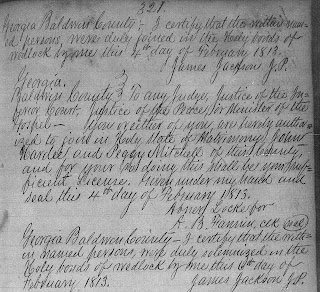 321.
Georgia Baldwin County - I certify that the within nam-
ed persons, were duly joined in the Holy bonds of
wedlock by me this 4th day of February 1813.
James Jackson J.P.
Georgia.
Baldwin County To any Judge, Justice of the In-
ferior Court, Justice of the Peace, or Minister of the
Gospel - You or either of you, are hereby author-
ized to join in Holy state of Matrimony, John
and Peggy Mitchell of this County,
and for your so doing this shall be your suf-
ficient License. Given under my hand and
seal this 4th day of February 1813.
Abner Locke for
B. Fannin, clk (seal)
Georgia Baldwin County - I certify that the with-
in named persons, were duly solemnized in the
Holy bonds of wedlock by me this day of
February 1813.
James Jackson J.P.